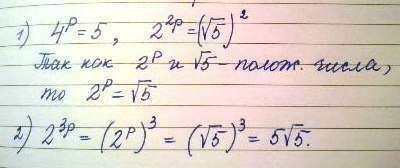 1) 4^p = 5, 2^{2p} = (√5)^2
Так как 2^p и √5 – полож. числа,
то 2^p = √5
2) 2^{3p} = (2^p)^3 = (√5)^3 = 5√5.